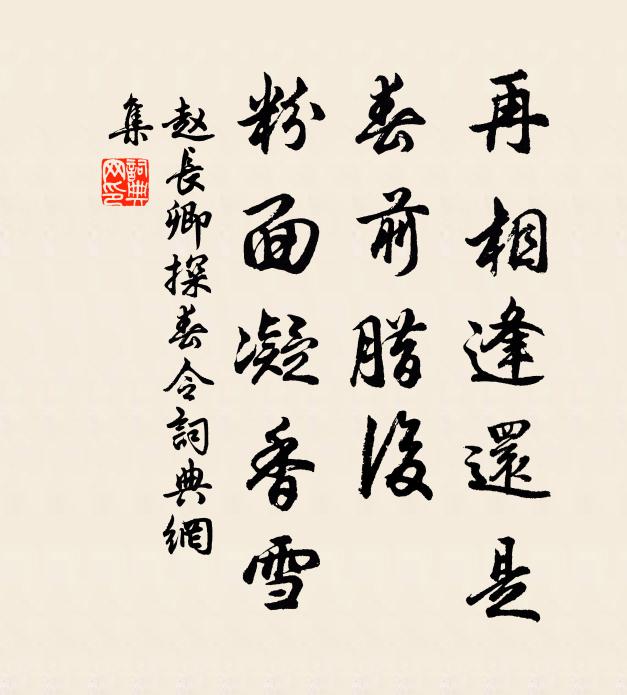 再相逢還是
春前腊後
粉面凝香雪
赵長卿探春令詞典網
集
詞典網印